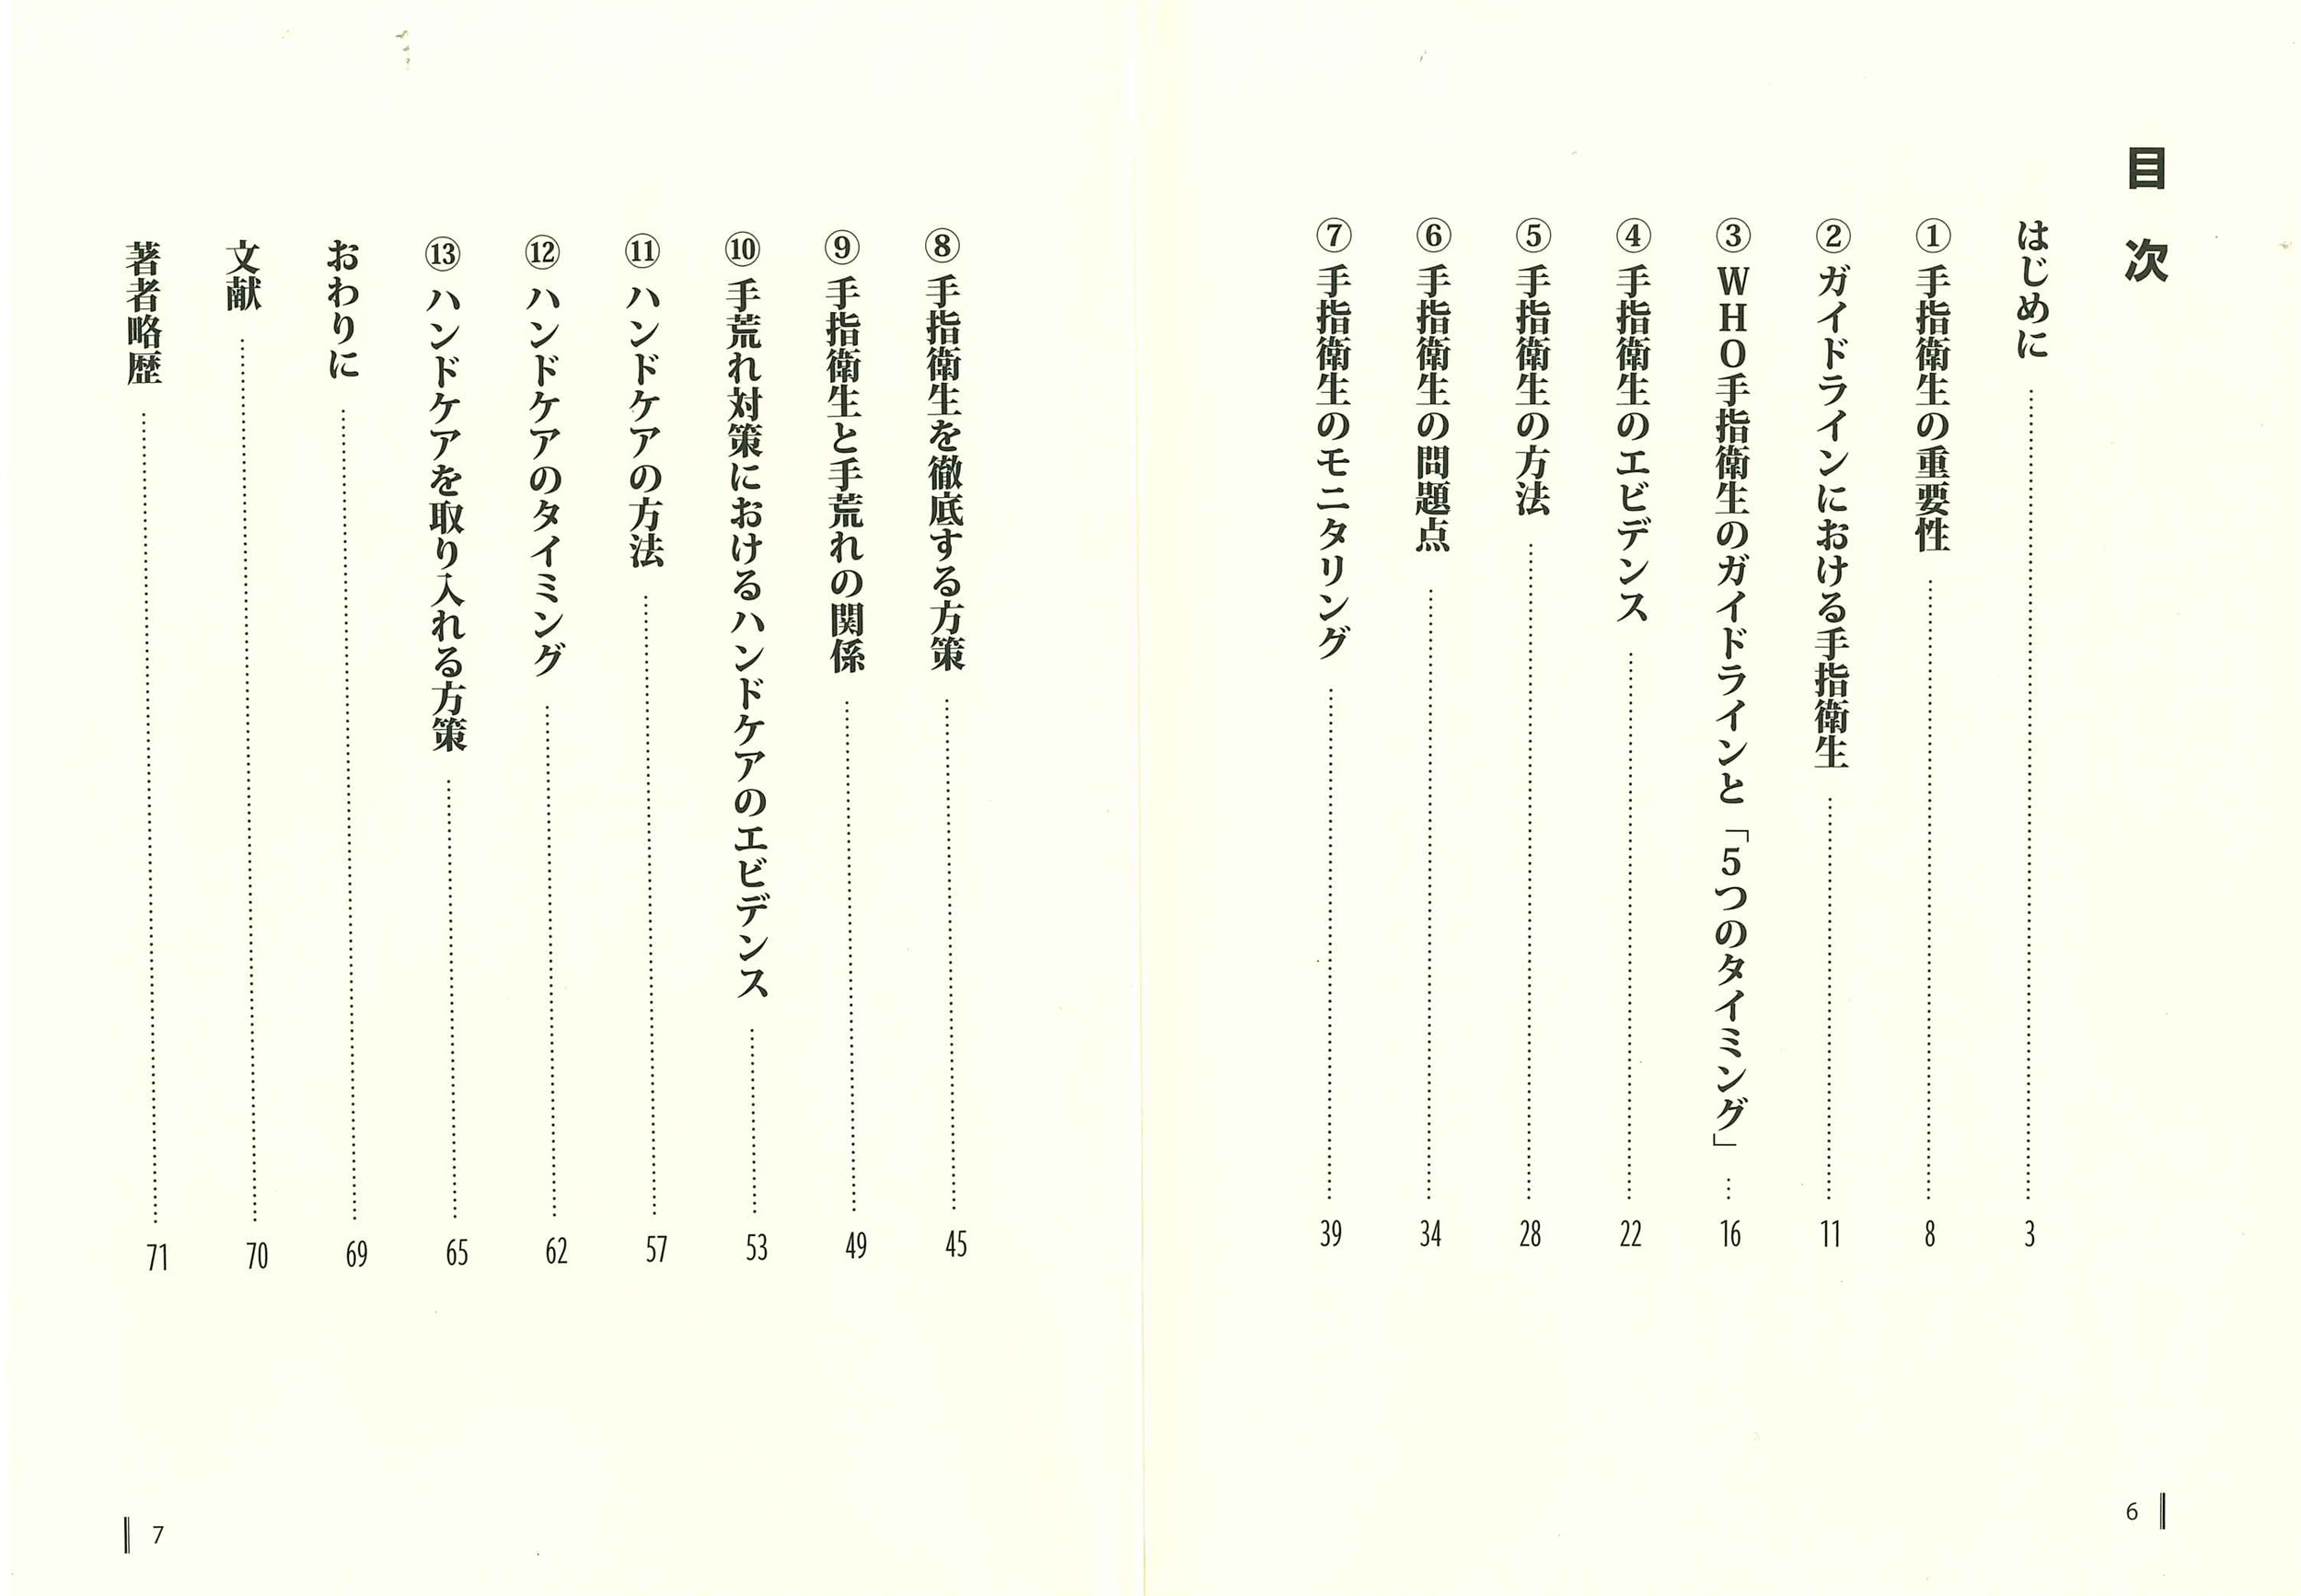 目次
はじめに 3
① 手指衛生の重要性 8
② ガイドラインにおける手指衛生 11
③ WHO手指衛生のガイドラインと「5つのタイミング」 16
④ 手指衛生のエビデンス 22
⑤ 手指衛生の方法 28
⑥ 手指衛生の問題点 34
⑦ 手指衛生のモニタリング 39
6
⑧ 手指衛生を徹底する方策 45
⑨ 手指衛生と手荒れの関係 49
⑩ 手荒れ対策におけるハンドケアのエビデンス 53
⑪ ハンドケアの方法 57
⑫ ハンドケアのタイミング 62
⑬ ハンドケアを取り入れる方策 65
おわりに 69
文献 70
著者略歴 71
7